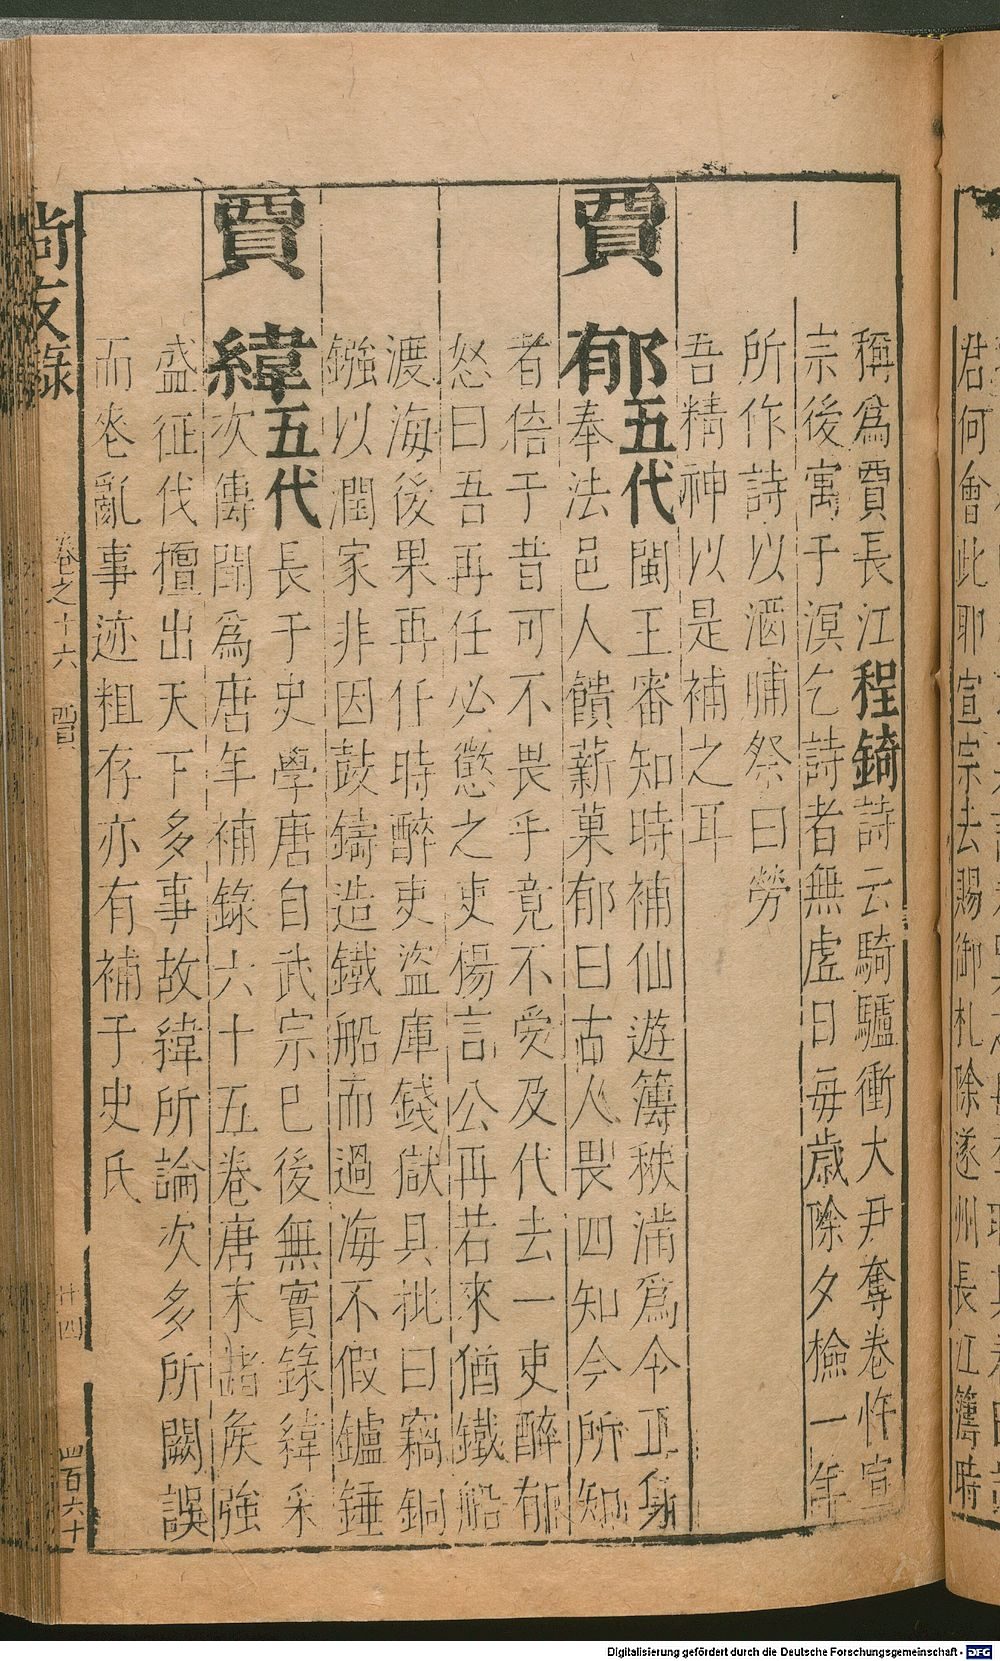 稱爲賈長江程錡詩云騎驢衝大尹奪卷忤宣
宗後寓于溟乞詩者無虛日每歲除夕檢一年
所作詩以酒脯祭曰勞
吾精神以是補之耳
賈郁五代閩王審知時補仙遊簿秩滿爲令正身
奉法邑人饋薪菓郁曰古人畏四知今所知
者倍于昔可不畏乎竟不受及代去一吏醉郁
怒曰吾再任必懲之吏楊言公再若來猶鐵船
渡海後果再任時醉吏盜庫錢獄具批曰竊銅
鏹以潤家非因鼓鑄造鐵船而過海不假鑪錘
賈緯五代長于史學唐自武宗巳後無實錄緯采
次傳聞爲唐年補錄六十五卷唐末諸侯強
盛征伐擅出天下多事故緯所論次多所闕誤
而卷亂事迹粗存亦有補于史氏
尚友錄 卷之十六 賈 廿四 四百六十
君何會此耶宣宗去賜御札除遂州長江簿時
Digitalisierung gefördert durch die Deutsche Forschungsgemeinschaft - DFG